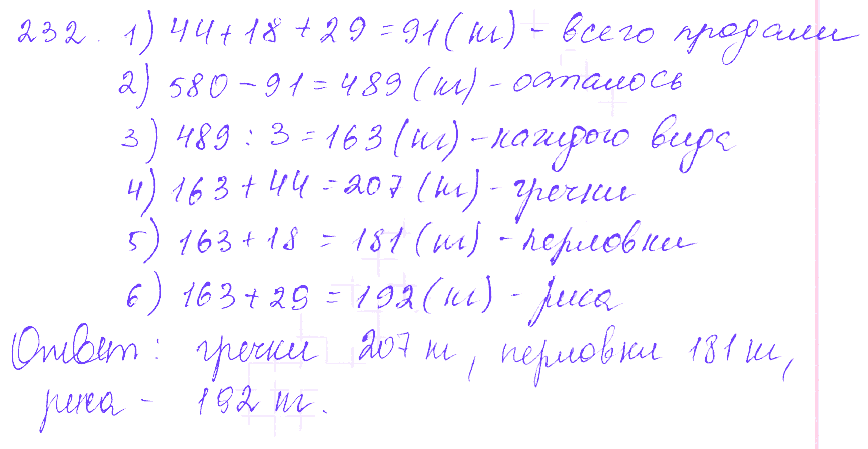 232. 1) 44+18+29=91(кг) - всего продали
2) 580-91=489(кг) - осталось
3) 489:3=163(кг) - каждого вида
4) 163+44=207(кг) - гречки
5) 163+18=181(кг) - перловки
6) 163+29=192(кг) - риса
Ответ: гречки 207 кг, перловки 181 кг,
риса - 192 кг.